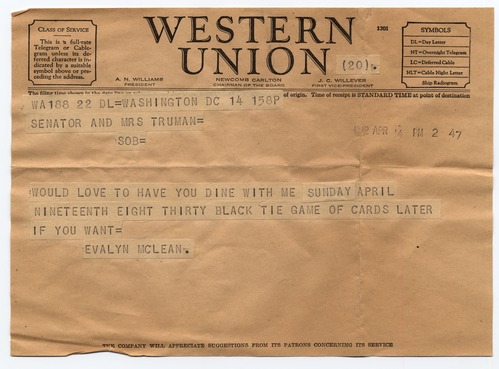 CLASS OF SERVICE
This is a full-rate
Telegram or Cable-
gram unless its de-
ferred character is
indicated by a suitable
symbol above or pre-
ceding the address.
WESTERN
UNION
1201
(20).
SYMBOLS
DL=Day Letter
NT=Overnight Telegram
LC=Deferred Cable
NLT=Cable Night Letter
Ship Radiogram
A. N. WILLIAMS
PRESIDENT
NEWCOMB CARLTON
CHAIRMAN OF THE BOARD
J. C. WILLEVER
FIRST VICE-PRESIDENT
The filing time shown in the of origin. Time of receipt is STANDARD TIME at point of destination
WA188 22 DL=WASHINGTON DC 14 158P
SENATOR AND MRS TRUMAN=
SOB=
APR PM 2 47
WOULD LOVE TO HAVE YOU DINE WITH ME SUNDAY APRIL
NINETEENTH EIGHT THIRTY BLACK TIE GAME OF CARDS LATER
IF YOU WANT=
EVALYN MCLEAN.
THE COMPANY WILL APPRECIATE SUGGESTIONS FROM ITS PATRONS CONCERNING ITS SERVICE